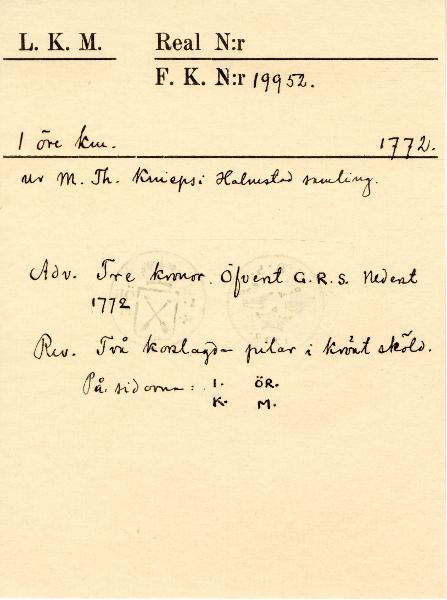 L. K. M. Real N:r
F. K. N:r 19952.
1 öre km. 1772.
ur M. Th. Knieps i Halmstad samling.
Adv. Tre kronor. Öfverst G.R.S. Nederst
1772
Rev. Två korslagda pilar i krönt sköld.
På sidorna: 1. ÖR.
K. M.